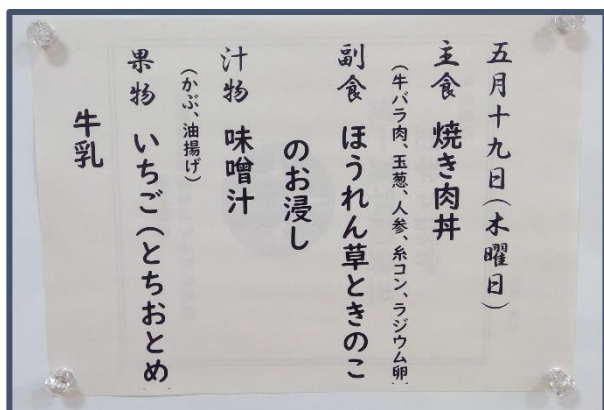 五月十九日(木曜日)
主食 焼き肉丼
(牛バラ肉、玉葱、人参、糸コン、ラジウム卵)
副食 ほうれん草ときのこ
のお浸し
汁物 味噌汁
(かぶ、油揚げ)
果物 いちご(とちおとめ
牛乳